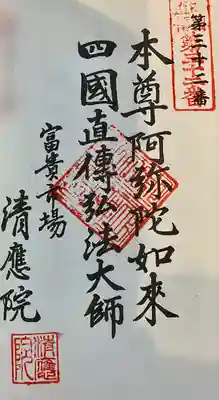 第三十二番
本尊阿弥陀如來
四國直傳弘法大師
富貴市場
清應院